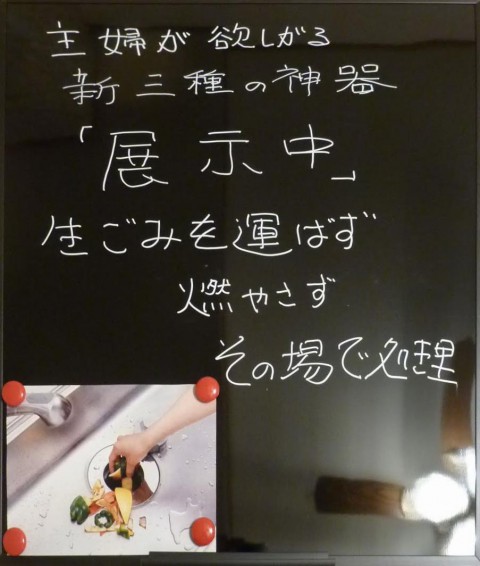 主婦が欲しがる
新三種の神器
「展示中」
生ごみを運ばず
燃やさず
その場で処理